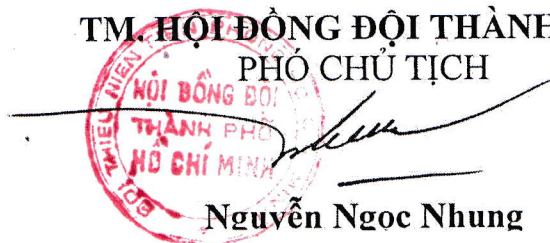 TM. HỘI ĐỒNG ĐỘI THÀNH
PHÓ CHỦ TỊCH
HỘI ĐỒNG ĐỘI
THÀNH PHỐ
HỒ CHÍ MINH
ĐỘI THIẾU NIÊN
Nguyễn Ngọc Nhung